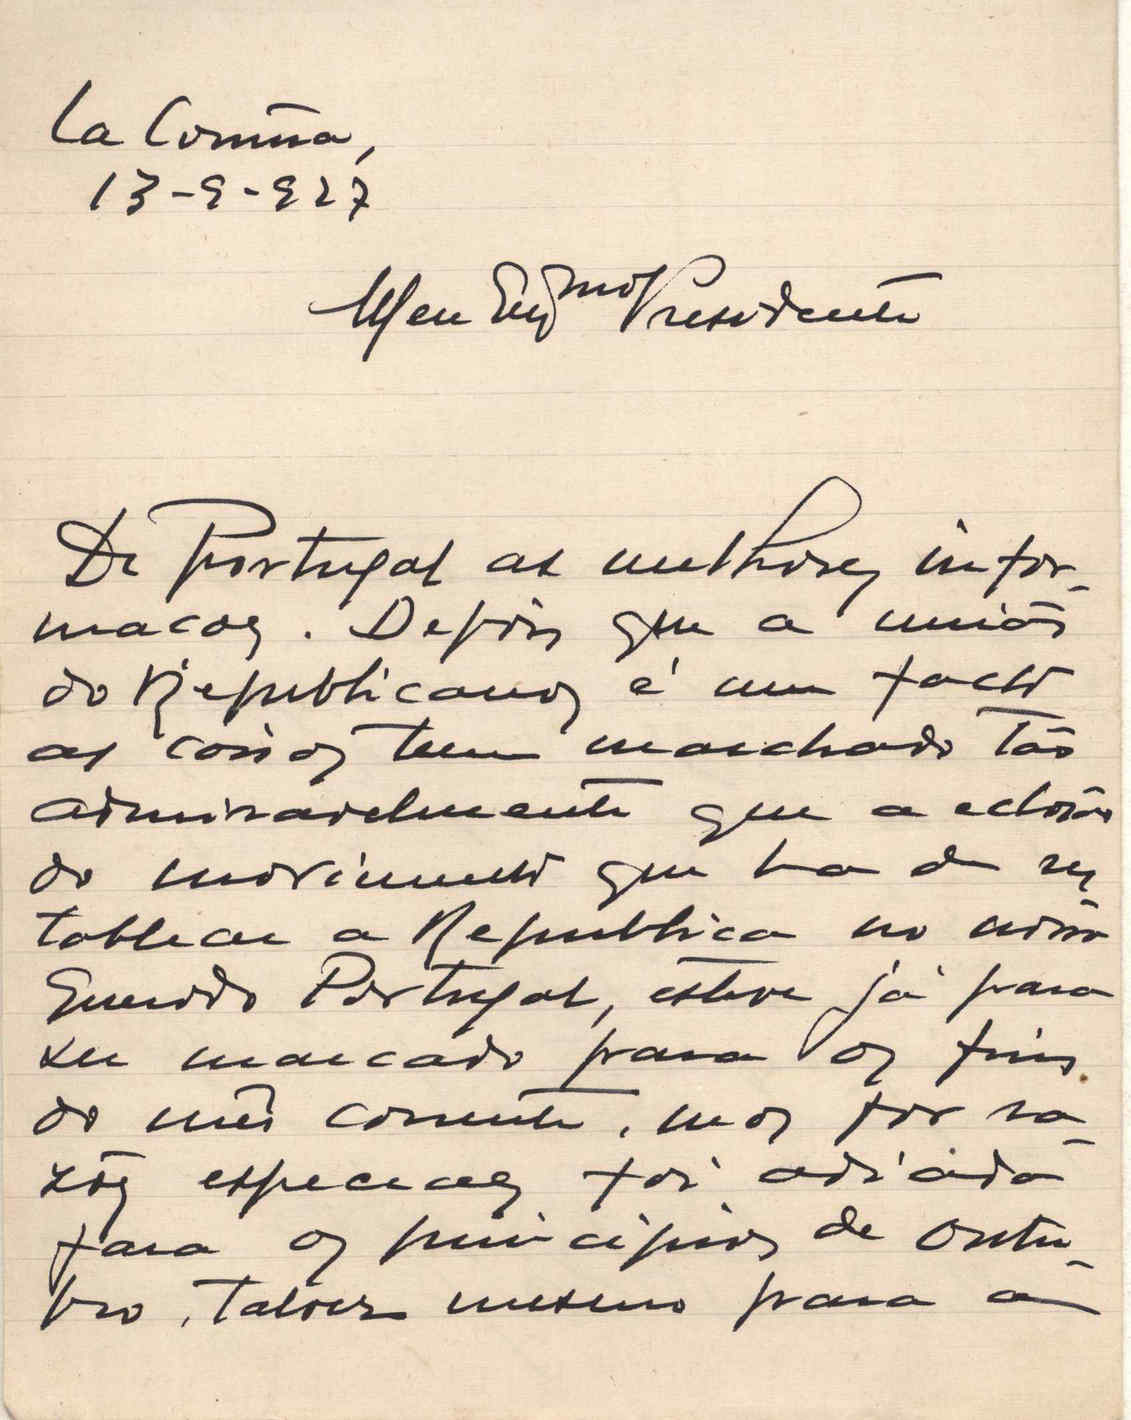 La Coruña,
13-9-927
Meu Exmo Presidente
De Portugal as melhores infor-
macoes. Depois que a união
do Republicanos é um facto
as coisas teem marchado tão
admiravelmente que a eclosão
do movimento que ha de res
tablecer a Republica no nosso
Querido Portugal, esteve já para
ser marcado para os fins
do mês corrente, mas por ra-
zões especiaes foi adiado
para os principios de Outu-
bro, talvez mesmo para a